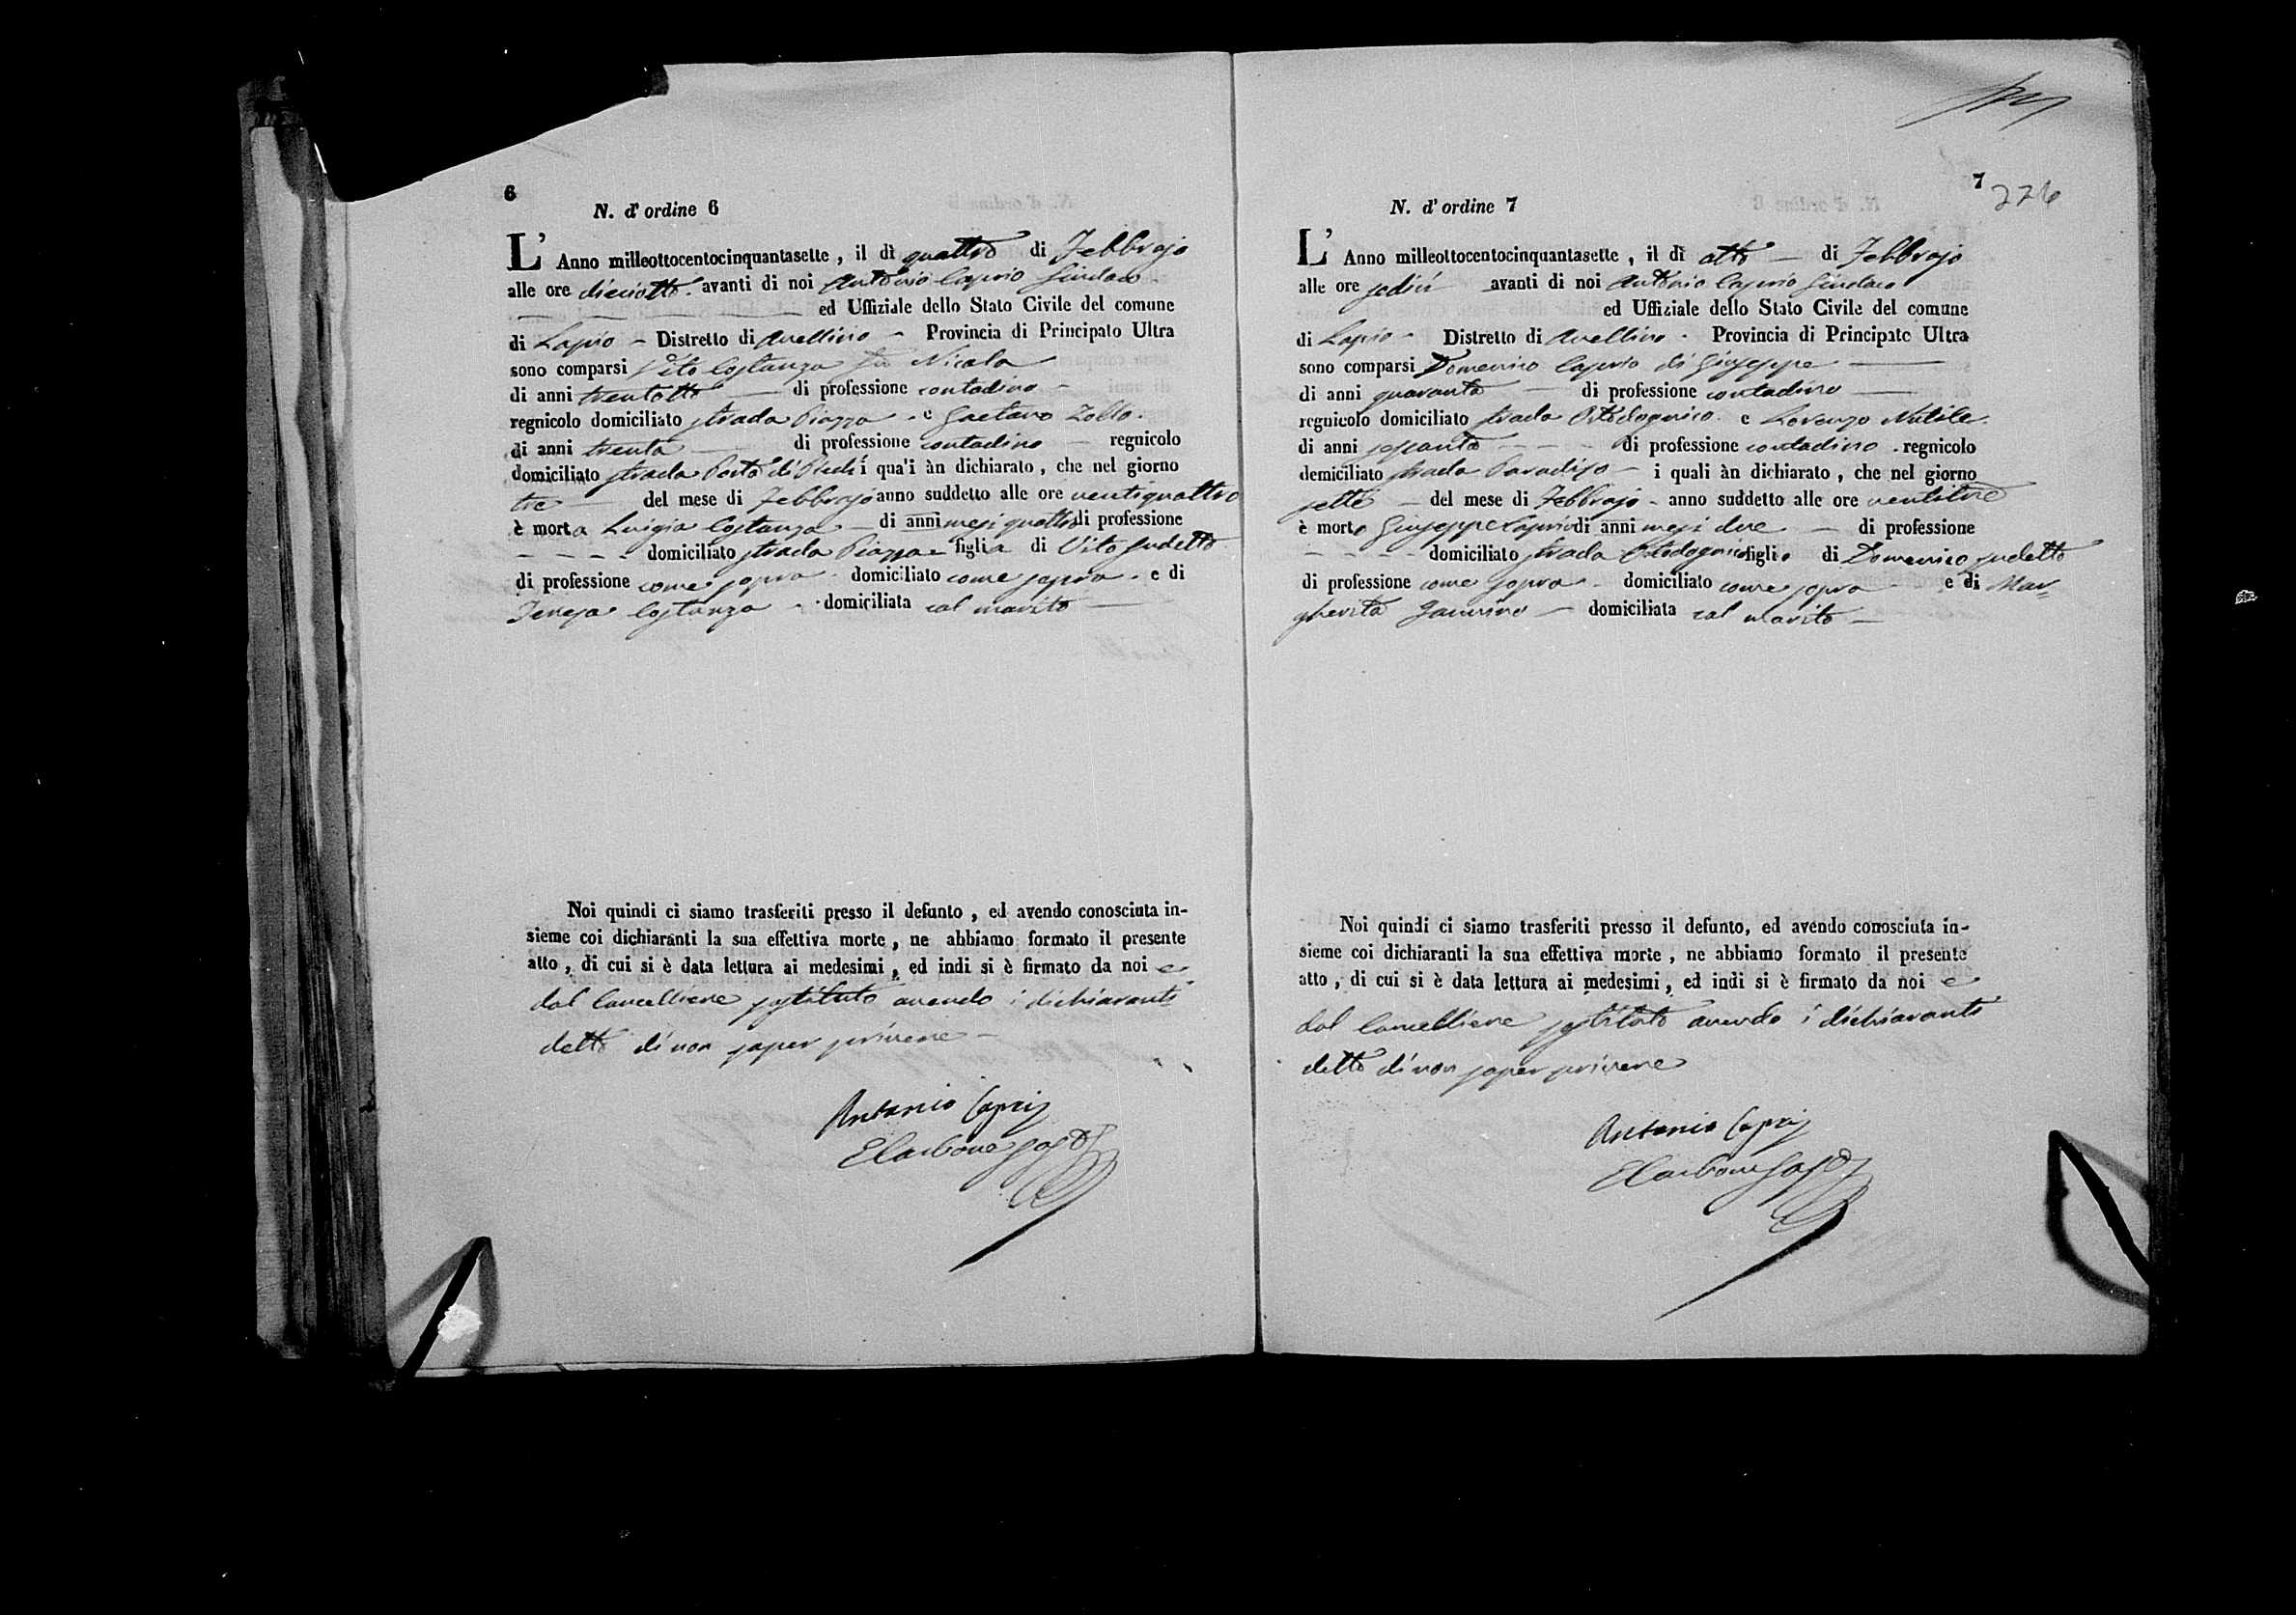 6
N. d'ordine 6
L' Anno milleottocentocinquantasette, il dì quattro di Febbrajo
alle ore dieciotto. avanti di noi Antonio Caprio Sindaco
ed Uffiziale dello Stato Civile del comune
di Lapio - Distretto di Avellino - Provincia di Principato Ultra
sono comparsi Vito Costanza fu Nicola
di anni trentotto di professione contadino -
regnicolo domiciliato strada Piazza . e Gaetano Zollo.
di anni trenta di professione contadino - regnicolo
domiciliato strada Porto di i qua'i àn dichiarato, che nel giorno
tre - del mese di Febbrajo anno suddetto alle ore ventiquattro
è morta Luigia Costanza - di anni mesi quattro di professione
- - - domiciliato strada Piazza - figlia di Vito sudetto
di professione come sopra . domiciliato come sopra . e di
Teresa Costanza . domiciliata col marito -
Noi quindi ci siamo trasferiti presso il defunto, ed avendo conosciuta in-
sieme coi dichiaranti la sua effettiva morte, ne abbiamo formato il presente
atto, di cui si è data lettura ai medesimi, ed indi si è firmato da noi e
dal Cancelliere sostituto avendo i dichiaranti
detto di non saper scrivere -
Antonio Caprio
E Carbone Sost
7
276
N. d'ordine 7
L' Anno milleottocentocinquantasette, il dì otto - di Febbrajo
alle ore sedici avanti di noi Antonio Caprio Sindaco
ed Uffiziale dello Stato Civile del comune
di Lapio - Distretto di Avellino . Provincia di Principato Ultra
sono comparsi Domenico Caprio di Giuseppe
di anni quaranta di professione contadino
regnicolo domiciliato strada . e Lorenzo
di anni sessanta - - - di professione contadino . regnicolo
domiciliato strada Paradiso - i quali àn dichiarato, che nel giorno
sette - del mese di Febbrajo - anno suddetto alle ore ventitre
è morto Giuseppe Caprio di anni mesi due - di professione
- - - - domiciliato strada figlio di Domenico sudetto
di professione come sopra - domiciliato come sopra e di Mar=
gherita - domiciliata col marito -
Noi quindi ci siamo trasferiti presso il defunto, ed avendo conosciuta in-
sieme coi dichiaranti la sua effettiva morte, ne abbiamo formato il presente
atto, di cui si è data lettura ai medesimi, ed indi si è firmato da noi e
dal Cancelliere sostituto avendo i dichiaranti
detto di non saper scrivere
Antonio Caprio
E Carbone Sost